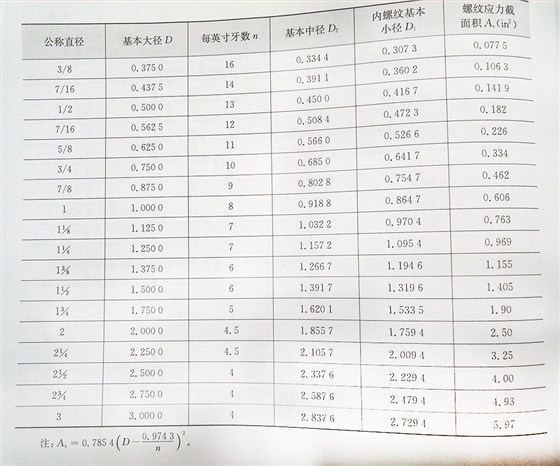 公称直径 基本大径 D 每英寸牙数 n 基本中径 D₂ 内螺纹基本小径 D₁ 螺纹应力截面积 Aₛ(in²)
3/8 0.375 0 16 0.334 4 0.307 3 0.077 5
7/16 0.437 5 14 0.391 1 0.360 2 0.106 3
1/2 0.500 0 13 0.450 0 0.416 7 0.141 9
7/16 0.562 5 12 0.508 4 0.472 3 0.182
5/8 0.625 0 11 0.566 0 0.526 6 0.226
3/4 0.750 0 10 0.685 0 0.641 7 0.334
7/8 0.875 0 9 0.802 8 0.754 7 0.462
1 1.000 0 8 0.918 8 0.864 7 0.606
1⅛ 1.125 0 7 1.032 2 0.970 4 0.763
1¼ 1.250 0 7 1.157 2 1.095 4 0.969
1⅜ 1.375 0 6 1.266 7 1.194 6 1.155
1½ 1.500 0 6 1.391 7 1.319 6 1.405
1¾ 1.750 0 5 1.620 1 1.533 5 1.90
2 2.000 0 4.5 1.855 7 1.759 4 2.50
2¼ 2.250 0 4.5 2.105 7 2.009 4 3.25
2½ 2.500 0 4 2.337 6 2.229 4 4.00
2¾ 2.750 0 4 2.587 6 2.479 4 4.93
3 3.000 0 4 2.837 6 2.729 4 5.97
注: Aₛ = 0.785 4(D − 0.974 3/n)²。